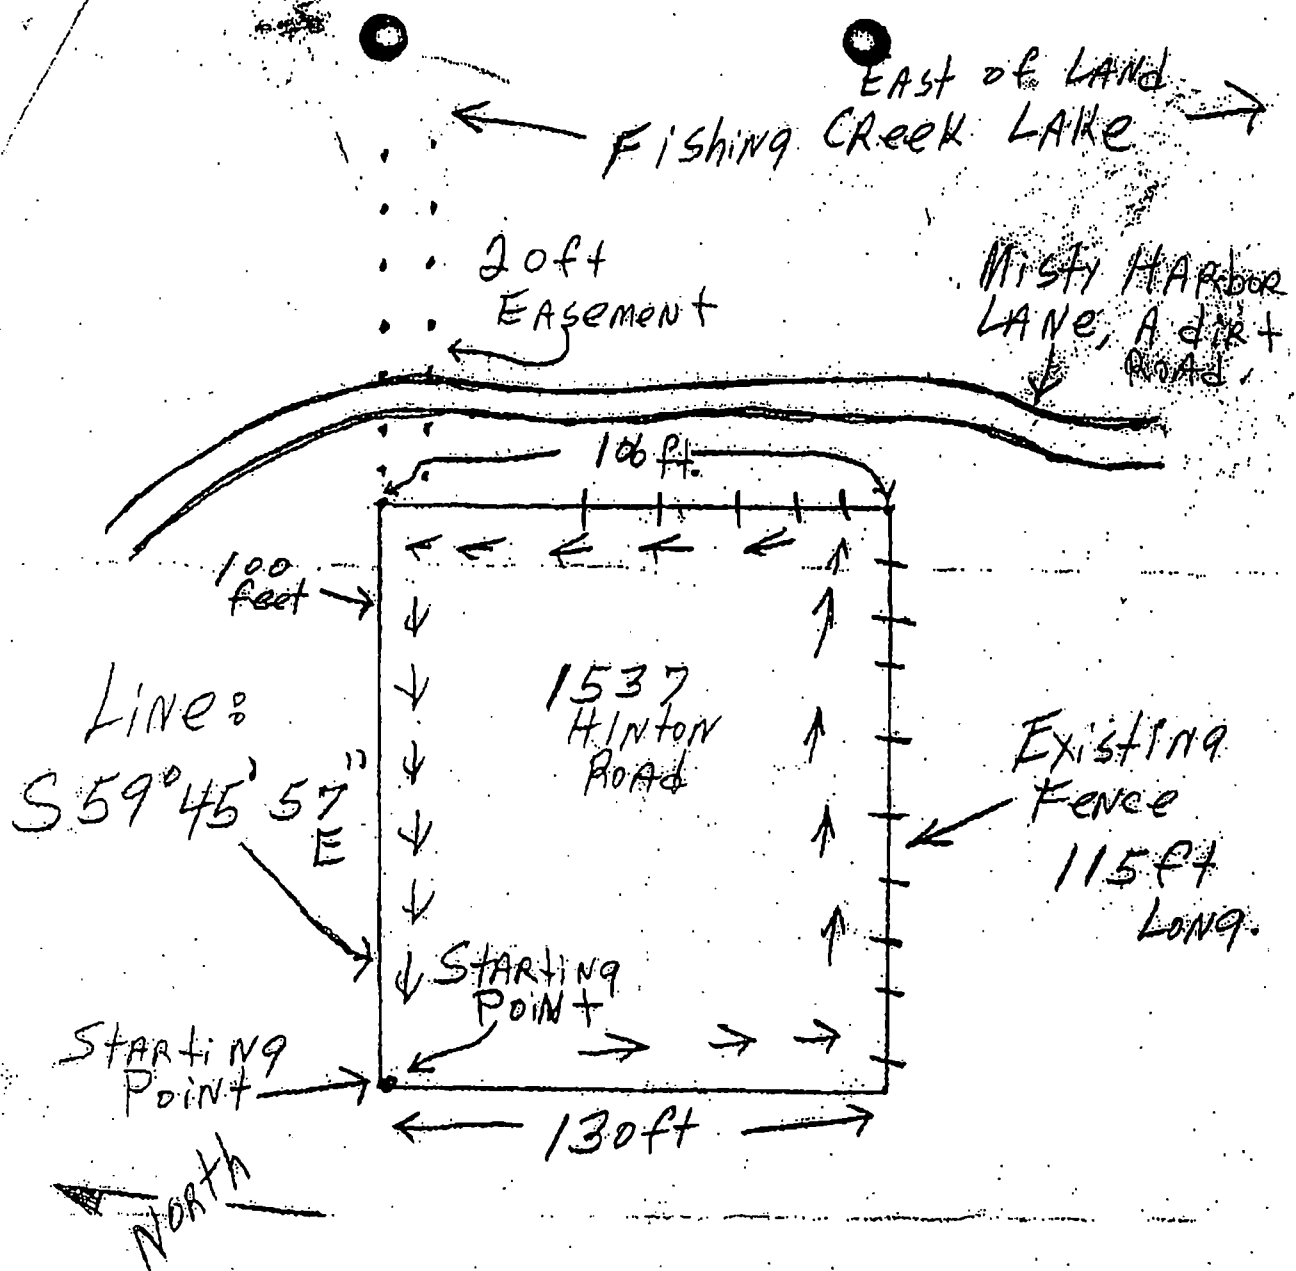 EAst of LANd
Fishing CReek LAKe
20ft
EAsement
Misty HARboR
LANe, A diRt
ROAd
106 ft.
100
feet
Line:
S 59° 45' 57"
E
1537
HINtoN
ROAd
ExistiNg
FeNce
115 ft
LoNg.
StARtiNg
PoiNt
StARtiNg
PoiNt
130ft
NoRth